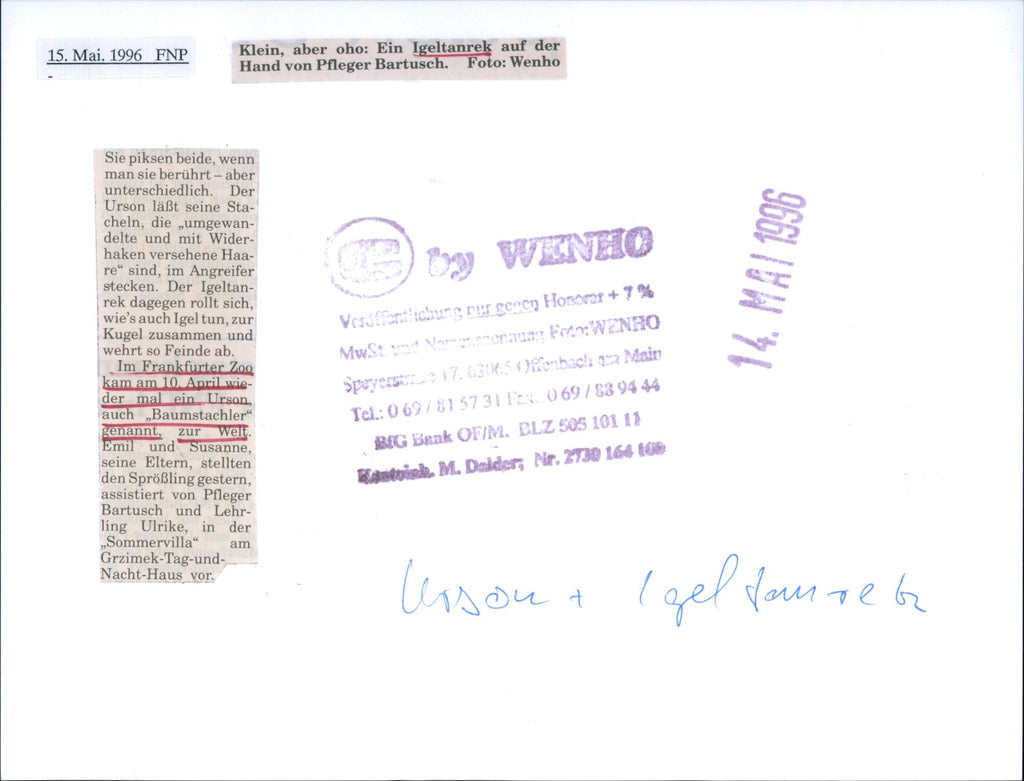 15. Mai. 1996 FNP
Klein, aber oho: Ein Igeltanrek auf der
Hand von Pfleger Bartusch. Foto: Wenho
Sie piksen beide, wenn
man sie berührt – aber
unterschiedlich. Der
Urson läßt seine Sta-
cheln, die „umgewan-
delte und mit Wider-
haken versehene Haa-
re“ sind, im Angreifer
stecken. Der Igeltan-
rek dagegen rollt sich,
wie's auch Igel tun, zur
Kugel zusammen und
wehrt so Feinde ab.
Im Frankfurter Zoo
kam am 10. April wie-
der mal ein Urson,
auch „Baumstachler“
genannt, zur Welt.
Emil und Susanne,
seine Eltern, stellten
den Sprößling gestern,
assistiert von Pfleger
Bartusch und Lehr-
ling Ulrike, in der
„Sommervilla“ am
Grzimek-Tag-und-
Nacht-Haus vor.
by WENHO
Veröffentlichung nur gegen Honorar + 7 %
MwSt. und Namensnennung Foto: WENHO
17, 63065 Offenbach am Main
Tel.: 0 69 / 81 57 31 Fax. 0 69 / 88 94 44
BfG Bank OF/M. BLZ 505 101 11
Kontoinh. M. Dalder; Nr. 2730 164 100
14. MAI 1996
Urson + Igeltanrek